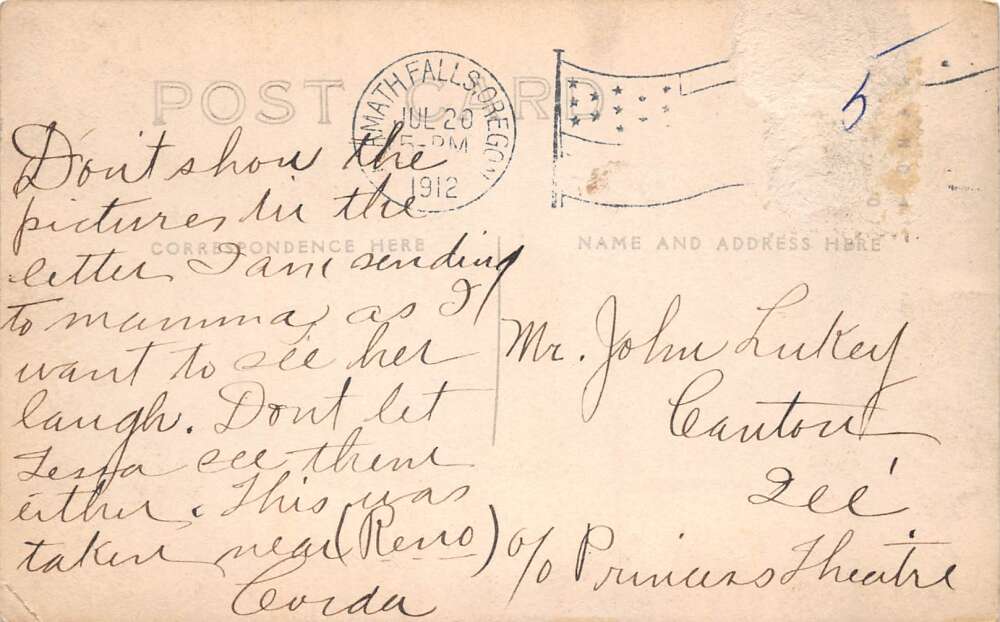 POST CARD
AMATH FALLS. OREGON
JUL 20
5-PM
1912
5
CORRESPONDENCE HERE
NAME AND ADDRESS HERE
Don't show the
pictures in the
letter I am sending
to mamma, as I
want to see her
laugh. Dont let
see them
either. This was
taken near (Reno)
Corda
Mr. John Lukey
Canton
Ill
c/o Princess Theatre